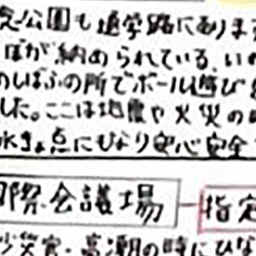 公園も通学路にあります
ぼが納められている、いの
しばふの所でボール遊び
した。ここは地震や火災の
きょ点にもなり安心安全
際会議場 指定
災害・高潮の時にひな